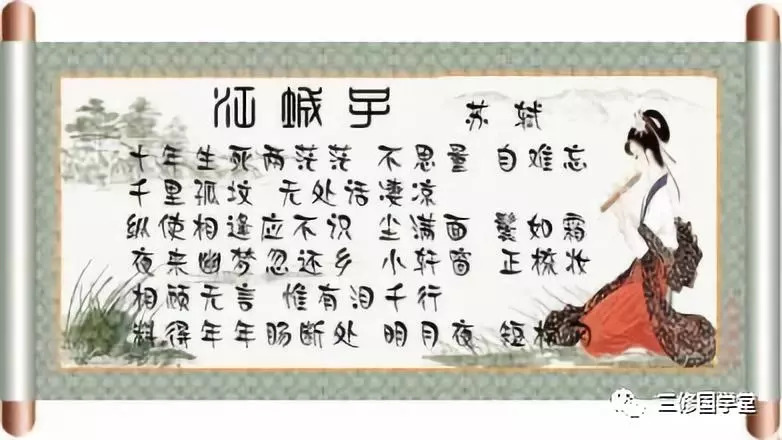 江城子 苏轼
十年生死两茫茫 不思量 自难忘
千里孤坟 无处话凄凉
纵使相逢应不识 尘满面 鬓如霜
夜来幽梦忽还乡 小轩窗 正梳妆
相顾无言 惟有泪千行
料得年年肠断处 明月夜 短松冈
三修国学堂